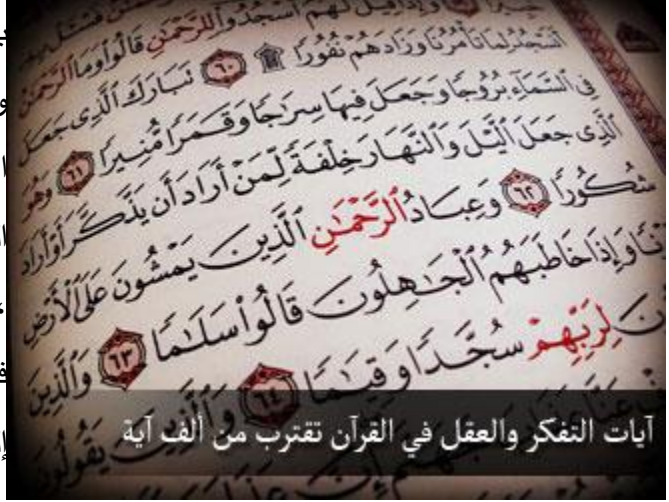 خبيرا ٥٩ وإذا قيل لهم ٱسجدوا للرحمٰن قالوا وما ٱلرحمٰن
أنسجد لما تأمرنا وزادهم نفورا ۩ ٦٠ تبارك ٱلذى جعل
فى ٱلسماء بروجا وجعل فيها سرٰجا وقمرا منيرا ٦١ وهو
ٱلذى جعل ٱليل وٱلنهار خلفة لمن أراد أن يذكر أو أراد
شكورا ٦٢ وعباد ٱلرحمٰن ٱلذين يمشون على ٱلأرض
وإذا خاطبهم ٱلجٰهلون قالوا سلٰما ٦٣ وٱلذين
لربهم سجدا وقيٰما ٦٤ وٱلذين يقولون
آيات التفكر والعقل في القرآن تقترب من ألف آية